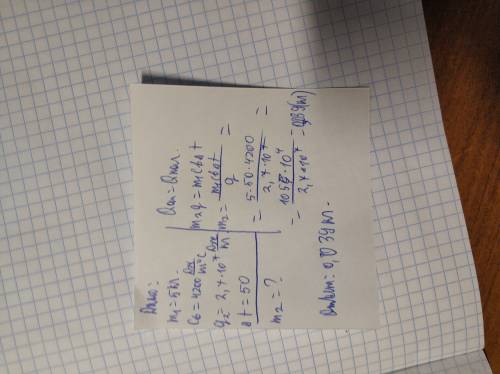 Дано:
m₁ = 5 кг.
Cв = 4200 Дж/м°C
q₂ = 2,7·10⁷ Дж/м
Δt = 50
m₂ = ?
Qсп = Qнагл.
m₂q = m₁cвΔt
m₂ = m₁cвΔt/q =
= 5·50·4200/2,7·10⁷ =
= 105·10⁴/2,7·10⁷ = 0,039(кг)
Ответ: 0,039 кг.